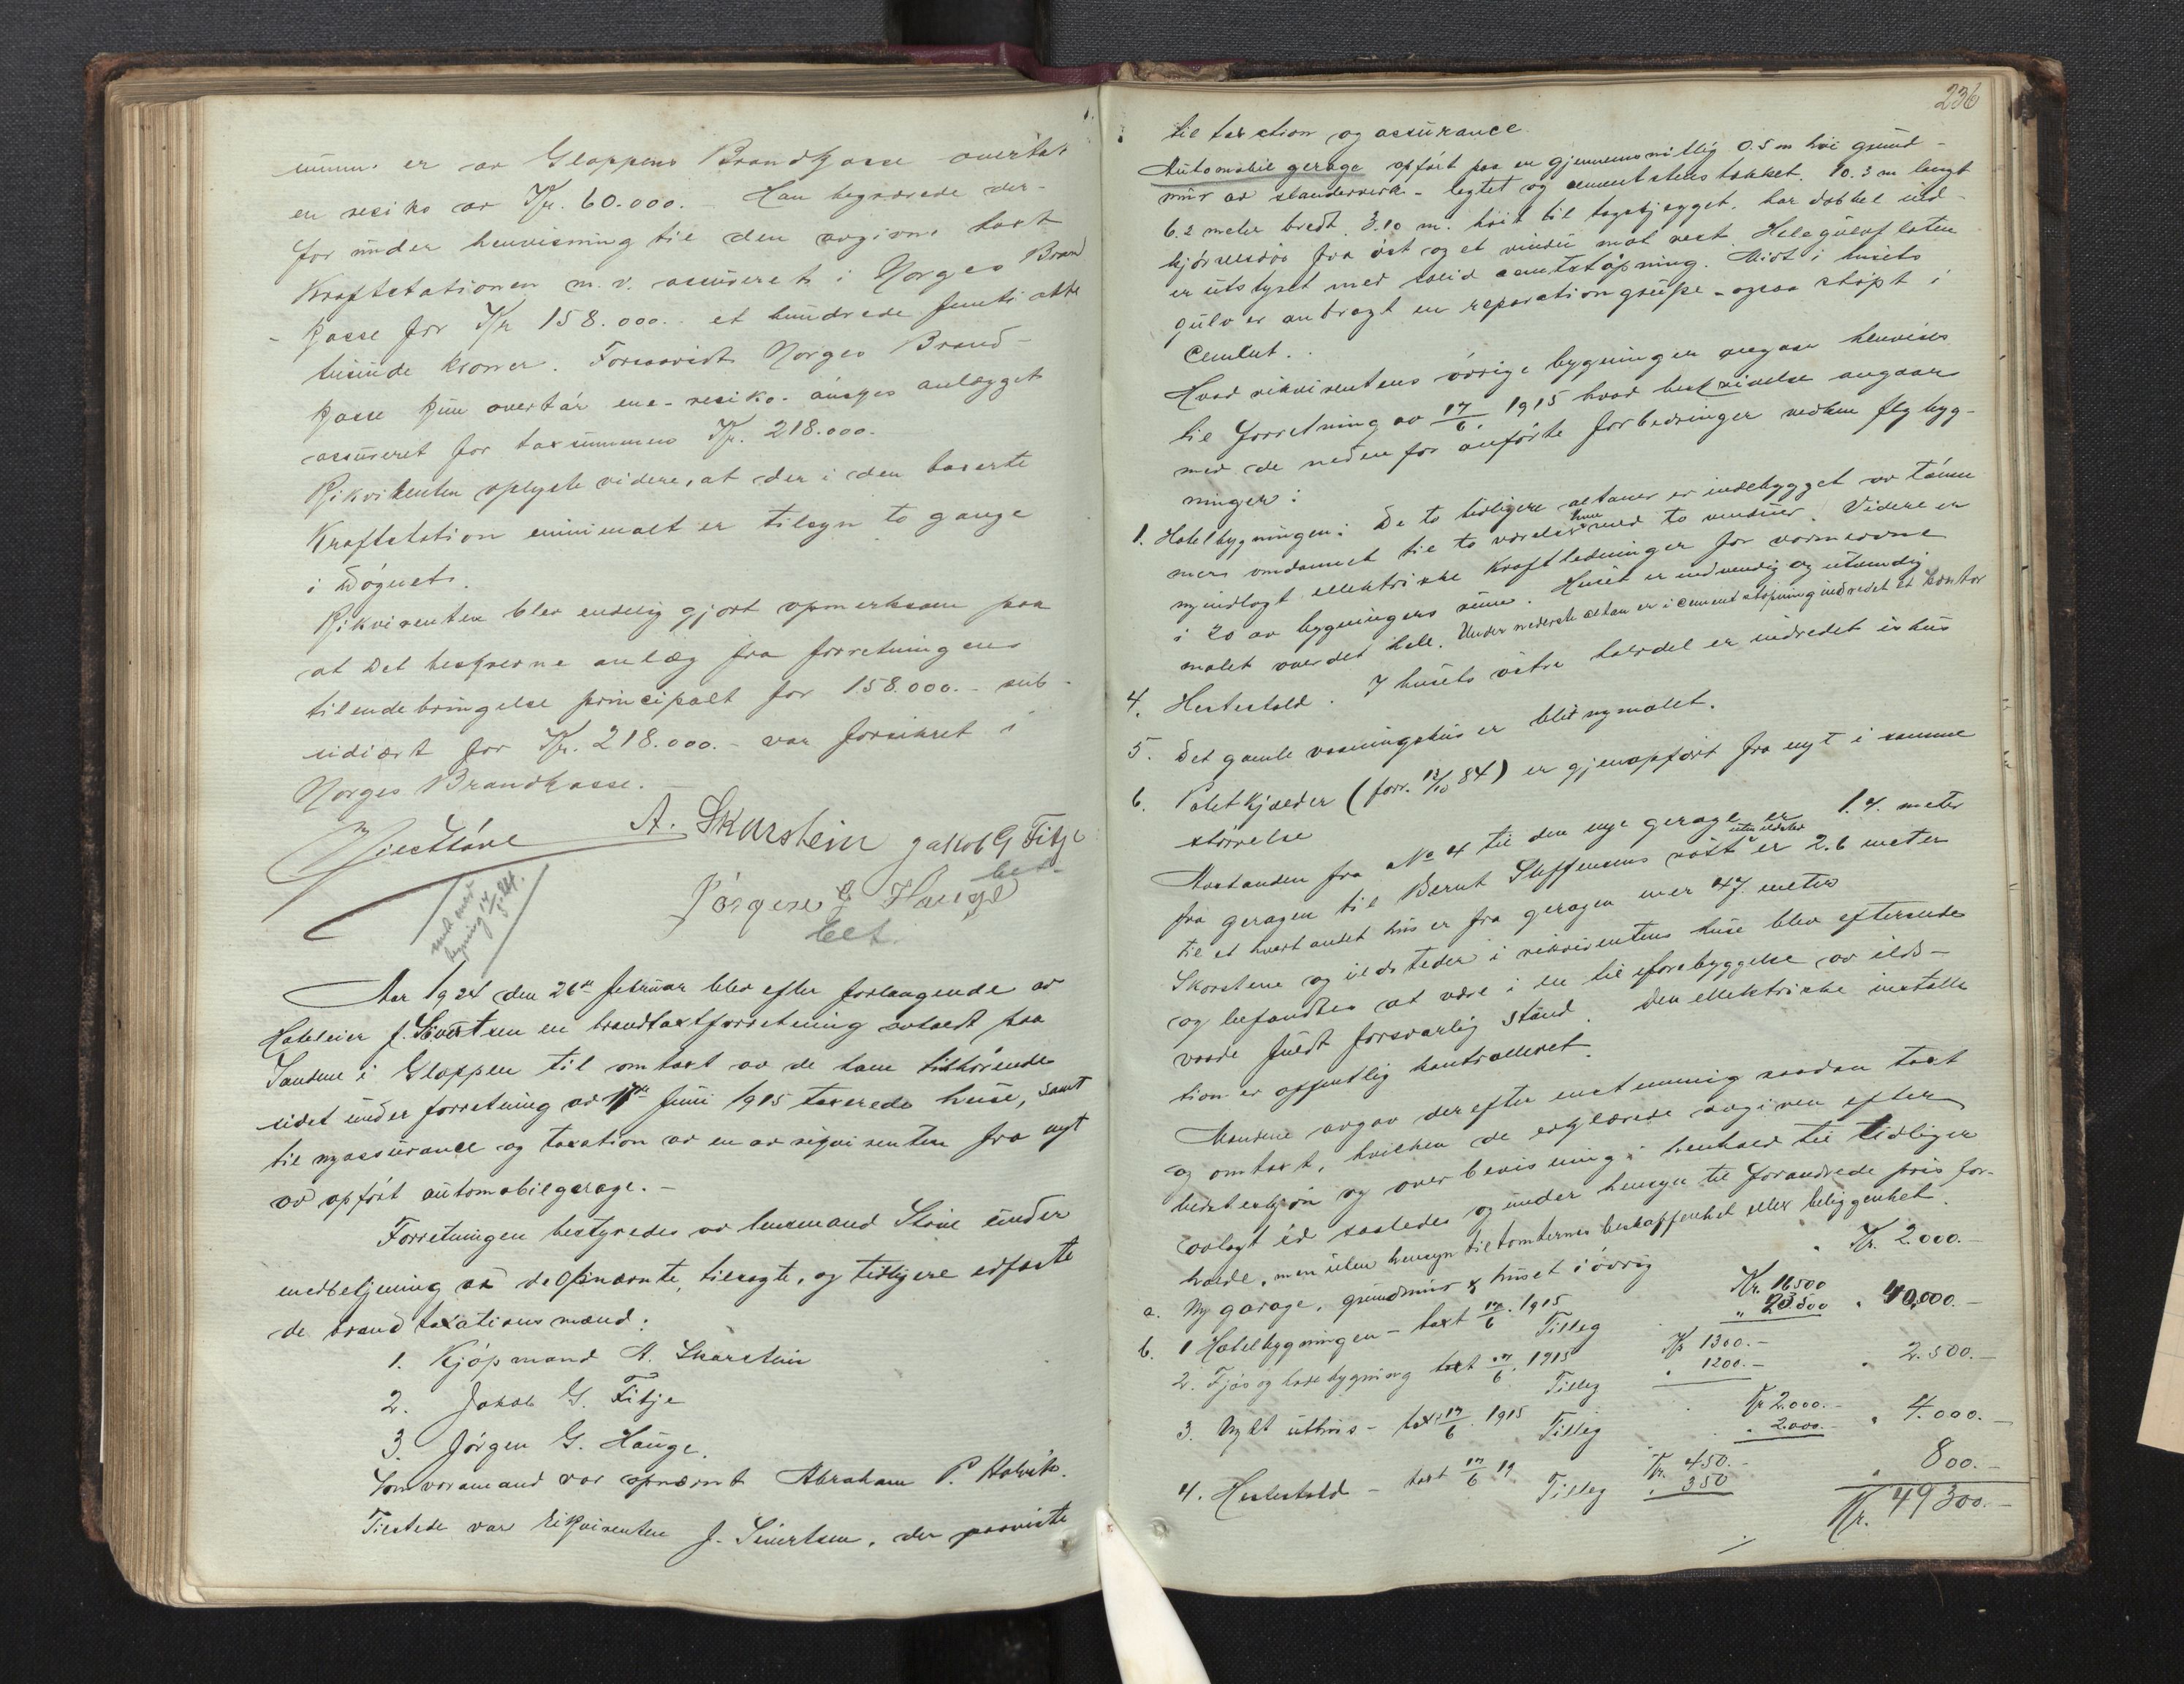 summe er av Gloppens Brandkasse overtat
en resiko av Kr. 60.000. - Han begjærede der-
for under henvisning til den avgivne taxt
Kraftstationen m. v. assureret i Norges Brand
kasse for Kr 158.000.- et hundrede femti otte
tusinde kroner. Forsaavidt Norges Brand-
kasse kun overtar ene-resiko. ønskes anlægget
assureret for taxsummens Kr. 218.000.-
Rikvirenten oplyste videre, at der i den taxerte
Kraftstation minimalt er tilsyn to gange
i Døgnet.
Rikvirenten blev endelig gjort opmerksom paa
at Det beskrevne anlæg fra forretningens
tilendebringelse principalt for 158.000.- sub-
sidiært for Kr. 218.000.- var forsikret i
Norges Brandkasse. -
A. Skarstein Jakob G Fitje
bet.
Jørgen G Hauge
bet.
Aar 1924 den 26de februar blev efter forlangende av
Hoteleier J. Sivertsen en brandtaxtforretning avholdt paa
Sandene i Gloppen til omtaxt av de ham tilhørende
sidst under forretning av 17de Juni 1915 taxerede huse, samt
til nyassurance og taxation av en av reqvirenten fra nyt
av opført automobilgarage. -
Forretningen bestyredes av lensmand Støve under
medbetjening av de opnævnte, tilsagte, og tidligere edfæste
de brandtaxationsmænd:
1. Kjøpmand A. Skarstein
2. Jakob G. Fitje
3. Jørgen G. Hauge.
Som varamand var opnævnt Abraham P. Holvik.
Tilstede var rikvirenten J. Sivertsen, der paaviste
236
til taxation og assurance.
Automobil gerage opført paa en gjennemsnitlig 0.5 m høi grund-
mur av standerverk - lagtet og cementstenstækket. 10.3 m langt
6.2 meter bredt. 3.10 m. høit til tagskjægget. har dobbel ind-
kjørselsdør fra øst og et vindu mot vest. Hele gulvflaten
er utstyret med solid cemtstøpning. Midt i husets
gulv er anbragt en reparationsgrube - ogsaa støpt i
Cement.
Hvad rikvirentens øvrige bygninger angaar henvises
til forretning av 17/6 1915 hvad beskrivelse angaar
med de nedenfor anførte forbedringer vedkm flg byg-
ninger:
1. Hotelbygningen: De to tidligere altaner er indebygget av tøm
mer omdannet til to værelser hver med to vinduer. Videre er
nyindlagt elektriske kraftledninger for varmeovne
i 20 av bygningens rum. Huset er indvendig og utvendig
malet over det hele. Under nederste altan er i cementstøpning indredet et kontor
4. Hestestald. I husets østre halvdel er indredet ishus
5. Det gamle vaaningshus er blit nymalet.
6. Potetkjælder (forr. 13/10 84) er gjenopført fra nyt i samme
størrelse
Avstanden fra No 4 til den nye gerage er 1.4. meter
fra geragen til Bernt Steffensens uten ildsted er 2.6 meter
til et hvert andet hus er fra geragen mer 47. meter
Skorstene og ildsteder i rikvirentens huse blev efterseede
og befandtes at være i en til forebyggelse av ilds-
vaade fuldt forsvarlig stand. Den elektriske installa
tion er offentlig kontrolleret.
Mændene avgav derefter enstemmig saadan taxt
og omtaxt, hvilken de erklærede avgiven efter
bedste skjøn og overbevisning i henhold til tidligere
avlagt ed saaledes og under hensyn til forandrede pris for-
holde, men uten hensyn til tomternes beskaffenhet eller beliggenhet.
a. Ny garage, grundmur & huset i øvrig " Kr. 2.000.-
b. 1 Hotelbygningen - taxt 17/6. 1915 Kr. 16500
Tillæg " 23500 " 40.000.-
2. Fjøs og ladebygning taxt 17/6. 1915 Kr 1300.-
Tillæg " 1200.- " 2.500.-
3. Nyt uthus - taxt 17/6. 1915 Kr 2.000.-
Tillæg " 2.000.- " 4.000.-
4. Hestestald - taxt 17/6 19 Kr. 450.-
Tillæg " 350 " 800.-
Kr. 49300.-